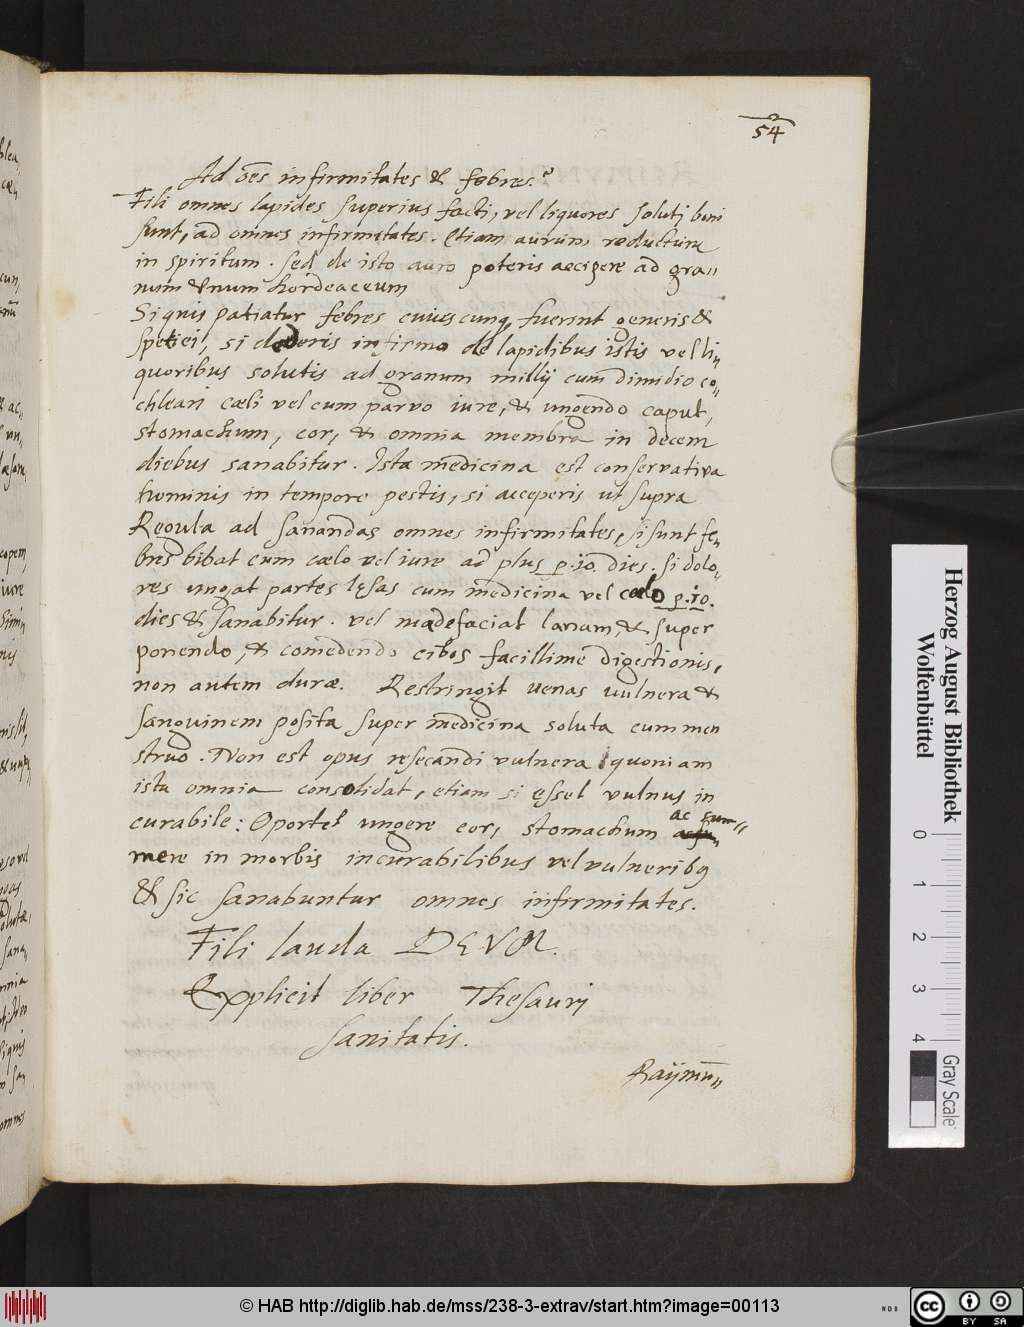 54
Ad oēs infirmitates & febres.
Fili omnes lapides superius facti, vel liquores soluti boni
sunt, ad omnes infirmitates. Etiam aurum reductum
in spiritum. sed de isto auro poteris accipere ad gra„
num vnum hordeaceum
Si quis patiatur febres cuiuscunq, fuerint generis &
spetiei, si dederis infirmo de lapidibus istis vel li„
quoribus solutis ad granum milij cum dimidio co„
chleari cæli vel cum parvo iure, & ungendo caput,
stomachum, cor, & omnia membra in decem
diebus sanabitur. Ista medicina est conservativa
hominis in tempore pestis, si acceperis ut supra
Regula ad sanandas omnes infirmitates, si sunt fe„
bres bibat cum cælo vel iure ad plus p.io. dies. si dolo„
res ungat partes lęsas cum medicina vel cælo p.io.
dies & sanabitur. vel madefaciat lanam, & super
ponendo, & comedendo cibos facillime digestionis,
non autem duræ. Restringit venas vulnera &
sanguinem posita super medicina soluta cum men
struo. Non est opus resecandi vulnera quoniam
ista omnia consolidat, etiam si esset vulnus in
curabile: Oportet ungere cor, stomachum ac sum„
mere in morbis incurabilibus vel vulneribq
& sic sanabuntur omnes infirmitates.
Fili lauda DEVM.
Explicit liber Thesauri
sanitatis.
Raijmū„
Herzog August Bibliothek
Wolfenbüttel
0 1 2 3 4
Gray Scale
© HAB http://diglib.hab.de/mss/238-3-extrav/start.htm?image=00113
cc BY SA